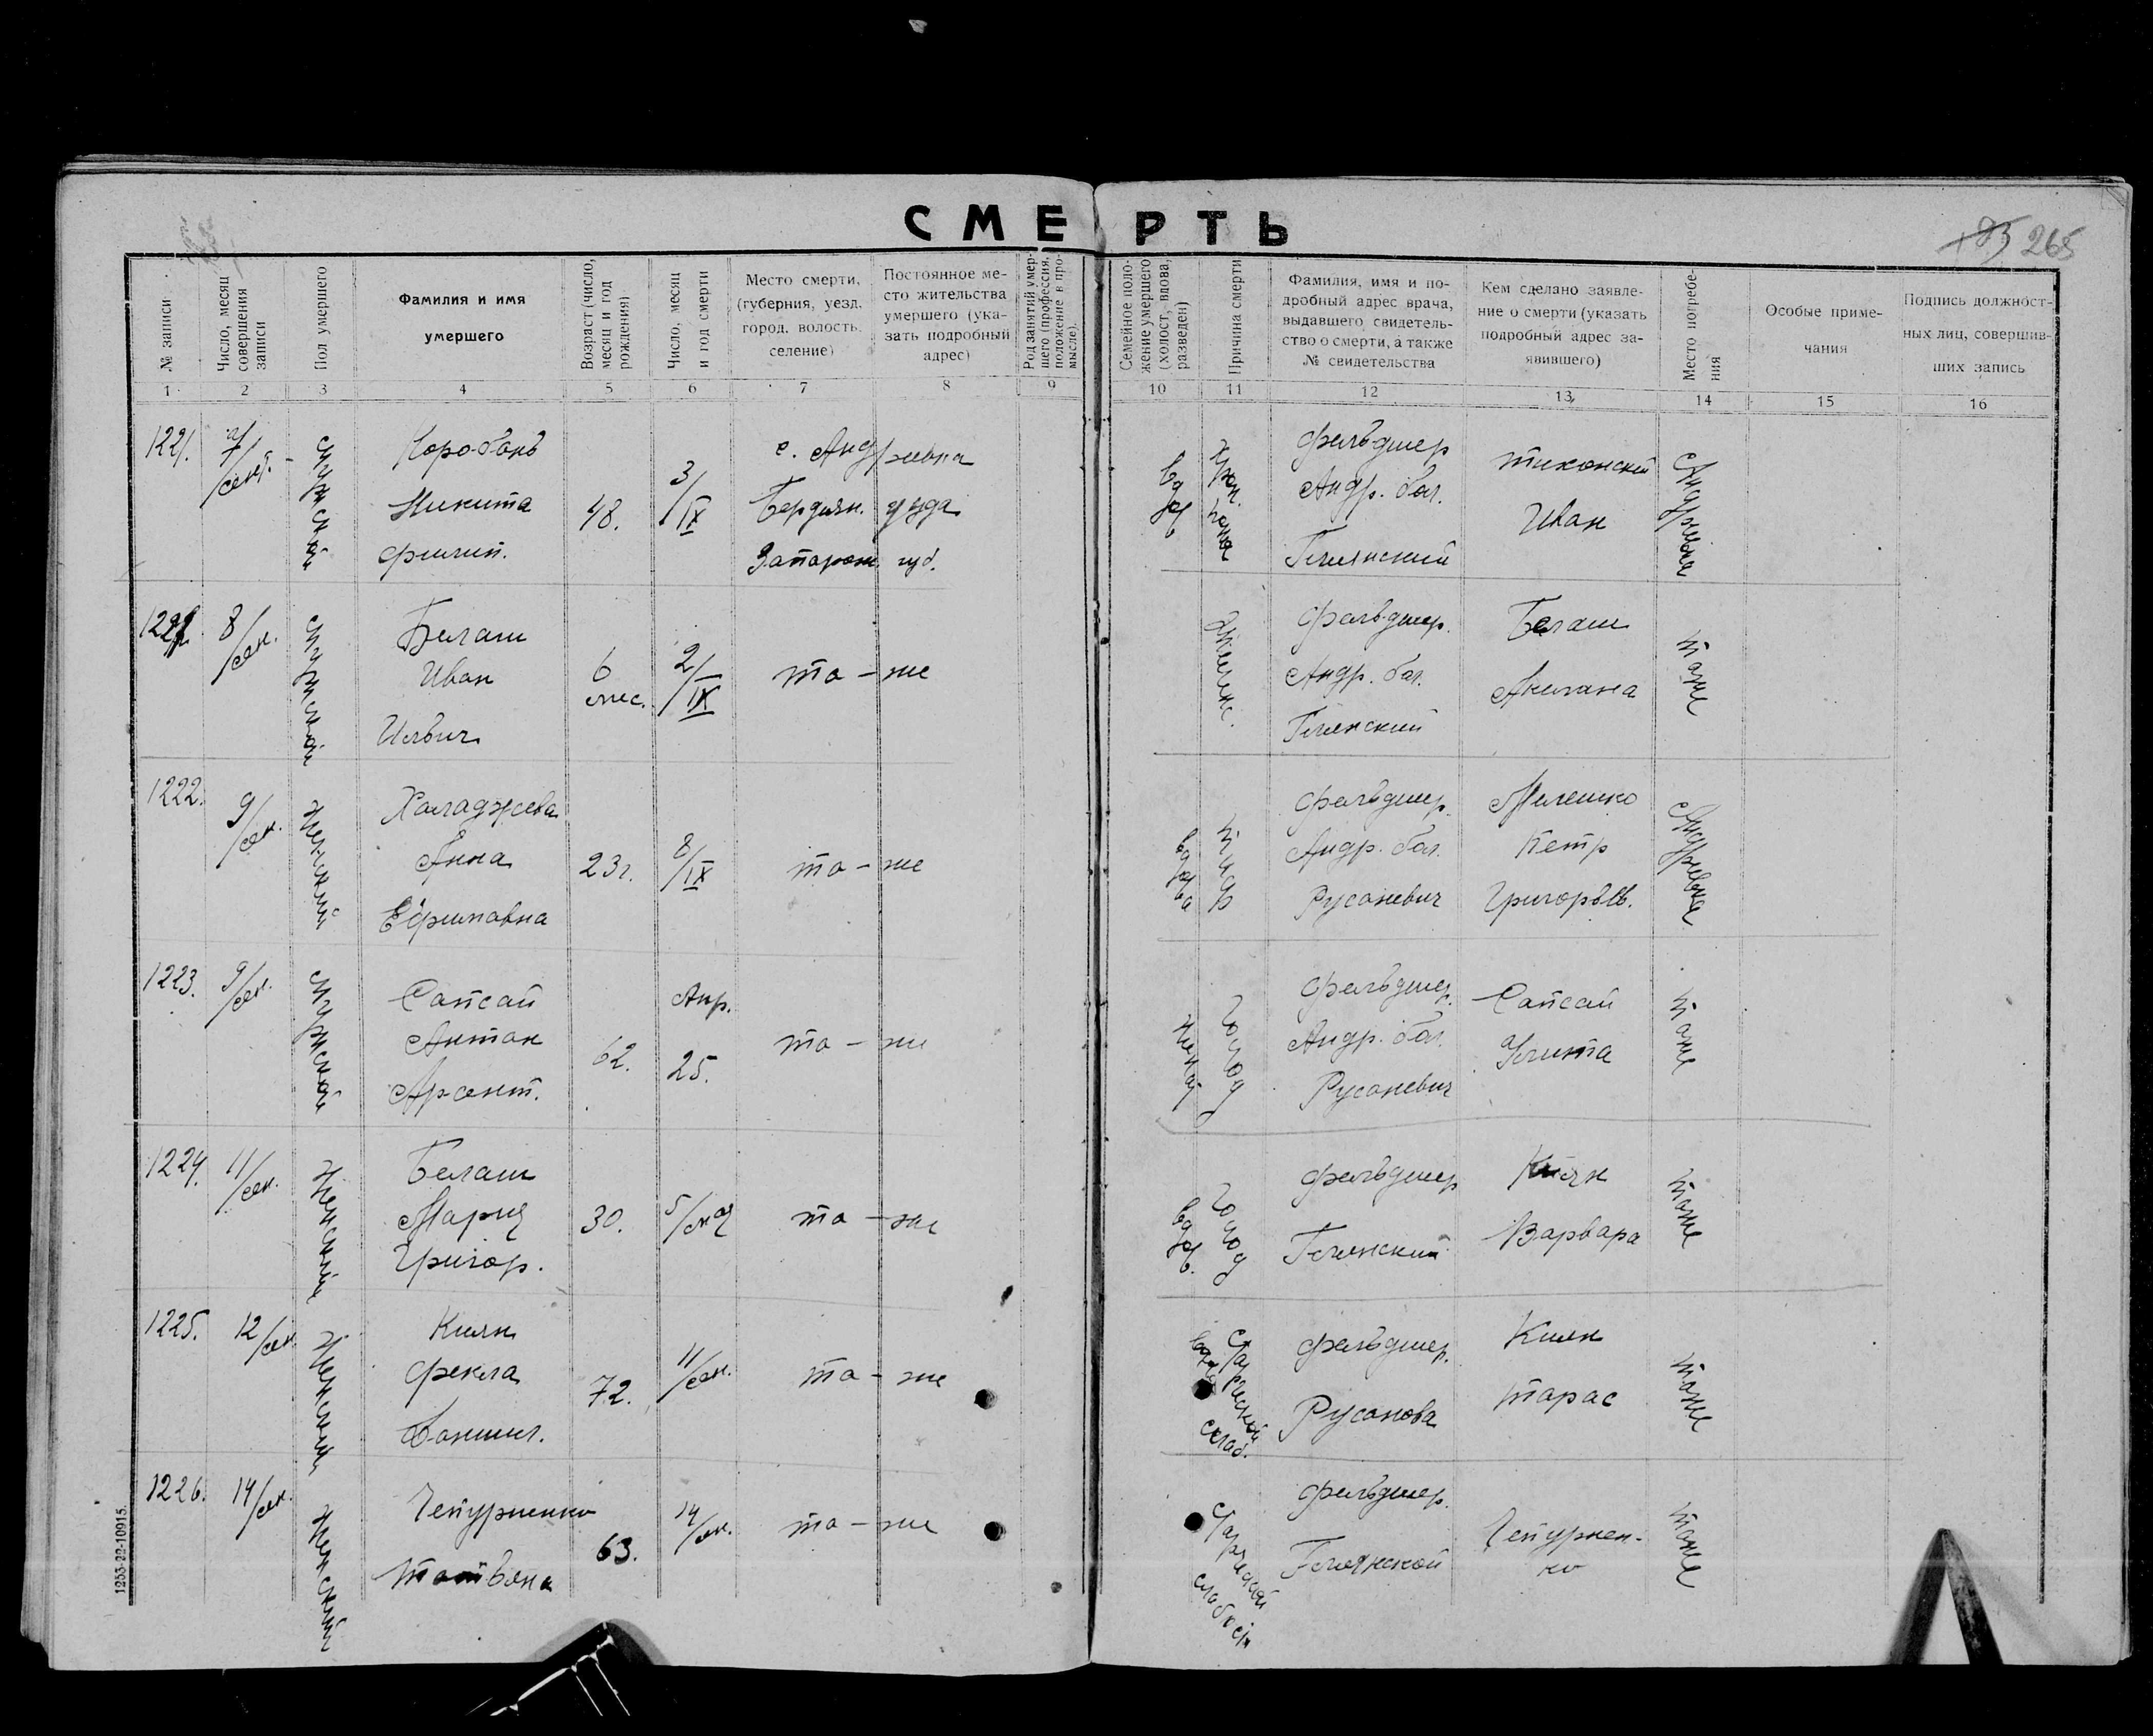 СМЕРТЬ
265
№ записи
Число, месяц совершения записи
Пол умершего
Фамилия и имя умершего
Возраст (число, месяц и год рождения)
Число, месяц и год смерти
Место смерти, (губерния, уезд, город, волость, селение)
Постоянное место жительства умершего (указать подробный адрес)
Род занятий умершего (профессия, положение в промысле).
Семейное положение умершего (холост, вдова, разведен)
Причина смерти
Фамилия, имя и подробный адрес врача, выдавшего свидетельство о смерти, а также № свидетельства
Кем сделано заявление о смерти (указать подробный адрес заявившего)
Место погребения
Особые примечания
Подпись должностных лиц, совершивших запись
1 2 3 4 5 6 7 8 9 10 11 12 13 14 15 16
1221. 7/сент. мужской
Никита
Филип.
48.
3/IX
с. Андреевка
Бердян. уезда
Запорож. губ.
вдов
Фельдшер
Андр. бол.
Иван
Андреевка
8/сен. мужской
Белаш
Иван
6 мес.
2/IX
то-же
Фельдшер.
Андр. бол.
Белаш
тоже
1222. 9/сен. женский
Халаджева
Анна
23 г.
8/IX
то-же
вдова
тиф
Фельдшер.
Андр. бол.
Русаневич
Мелешко
Петр
Григорьев.
Андреевка
1223. 9/сен. мужской
Сапсай
Антон
Арсент.
62.
Апр. 25.
то-же
женат
голод
Фельдшер.
Андр. бол.
Русаневич
Сапсай
тоже
1224. 11/сен. женский
Белаш
Мария
Григор.
30.
5/мая
то-же
вдов.
голод
Фельдшер
Киян
Варвара
тоже
1225. 12/сен. женский
Киян
Фекла
72.
11/сен.
то-же
Старческой слаб.
Фельдшер.
Русанова
Киян
Тарас
тоже
1226. 14/сен. женский
Чепурненко
Татьяна
63.
14/сен.
то-же
Старческой
Фельдшер.
Чепурнен-
ко
тоже
1253-22-10915.